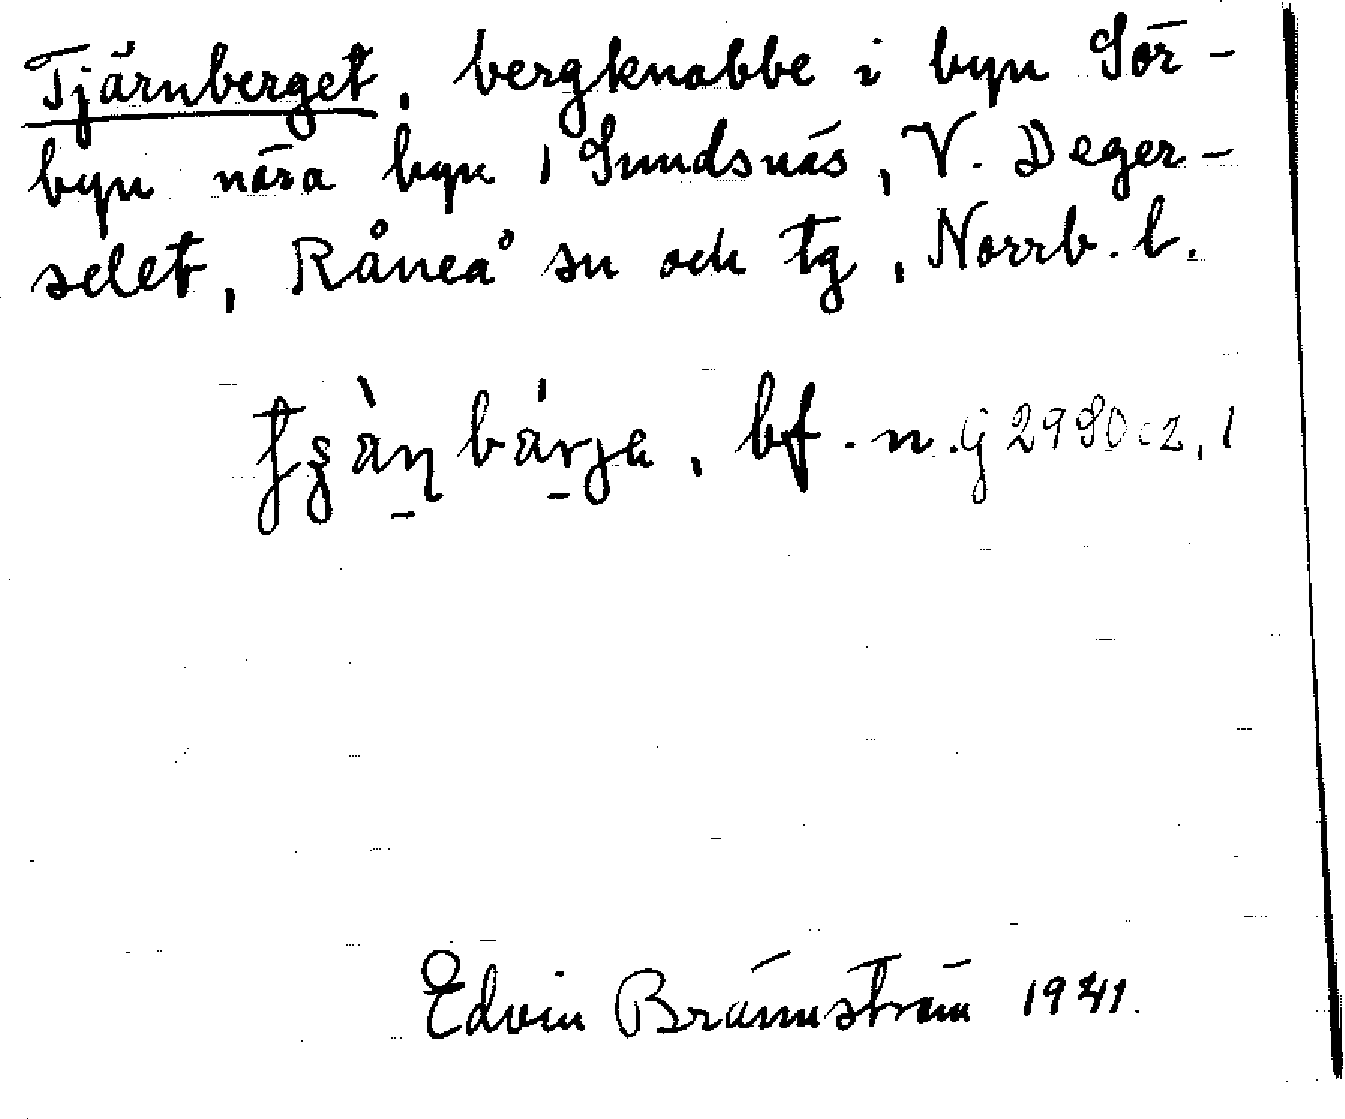 Tjärnberget, bergknabbe i byn Sör-
byn nära byn Sundsnäs, V. Deger-
selet, Råneå sn och tg, Norrb. l.
bf. n.
Edvin Brännström 1941.